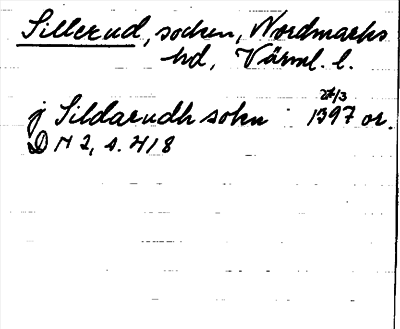 Sillerud, socken, Nordmarks
hd, Värml. l.
24/3
j Sildarudh sokn 1397 or.
D N 2, s. 418